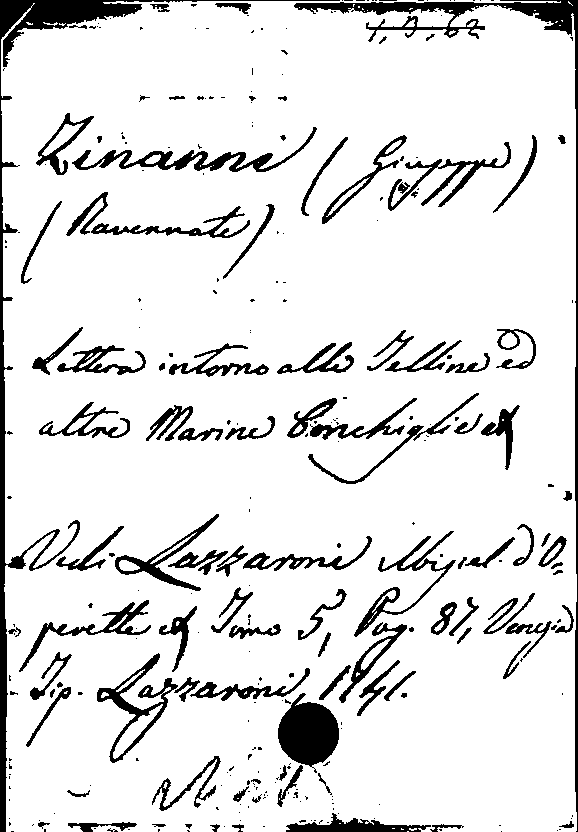 1, D, 62
Zinanni (Giuseppe)
(Ravennate)
Lettera intorno alle Telline ed
altre Marine Conchiglie et
Vedi Lazzaroni Miscel. d'O=
perette et Tomo 5, Pag. 87, Venezia
Tip. Lazzaroni, 1741.